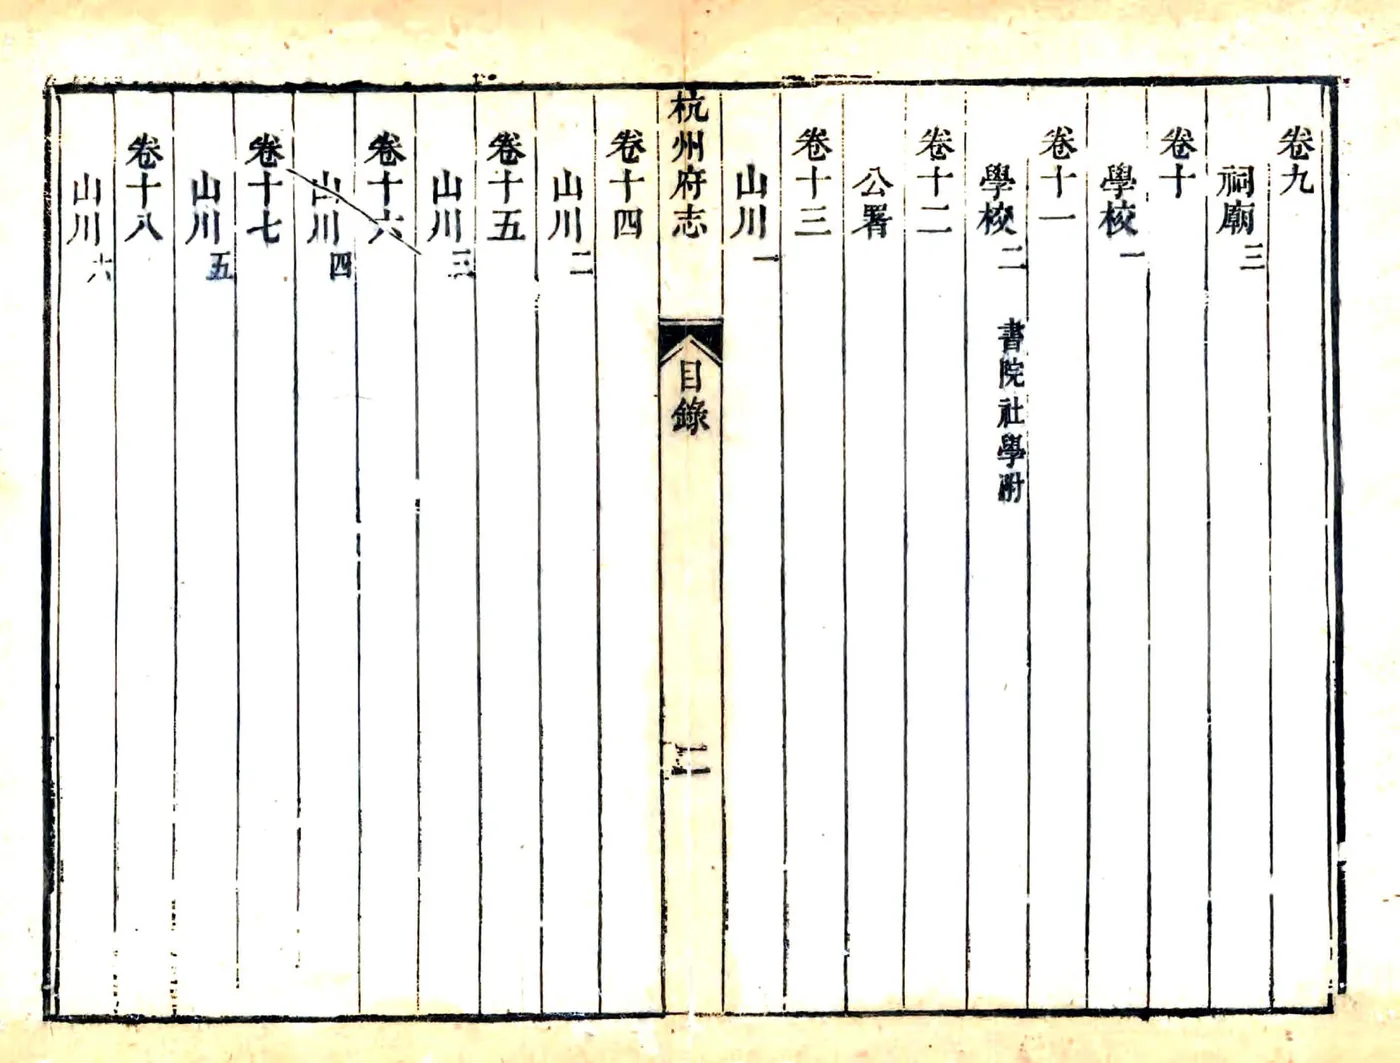 卷九
祠廟三
卷十
學校一
卷十一
學校二 書院社學附
卷十二
公署
卷十三
山川一
杭州府志 目錄 二
卷十四
山川二
卷十五
山川三
卷十六
山川四
卷十七
山川五
卷十八
山川六